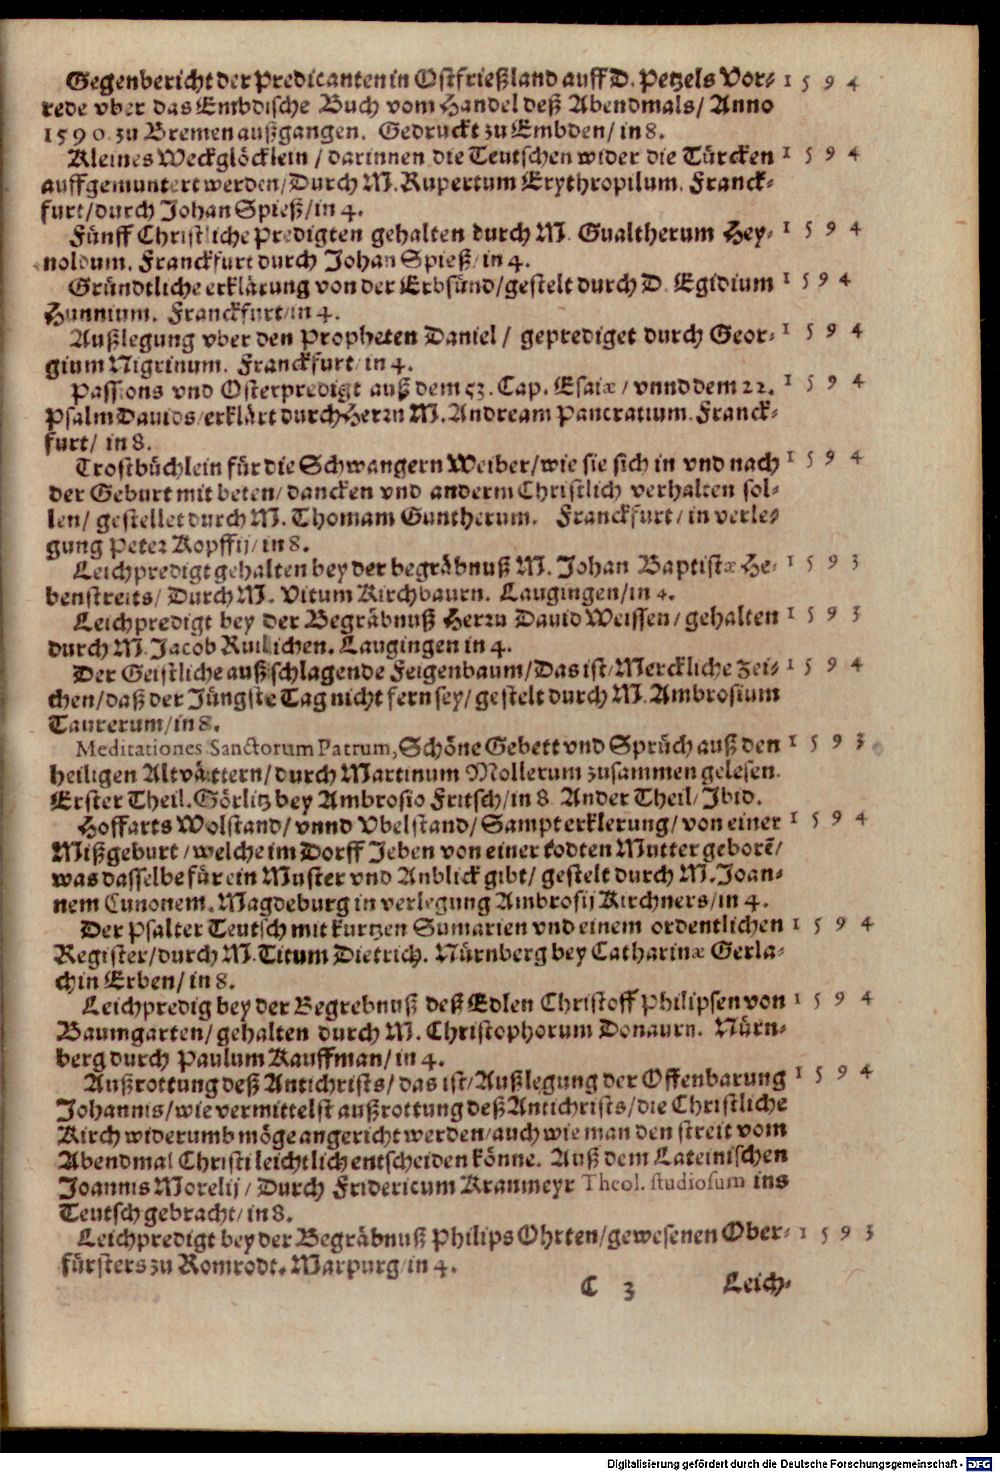 Gegenbericht der Predicanten in Ostfrießland auff D. Petzels Vor- 1594
rede vber das Embdische Buch vom Handel deß Abendmals/ Anno
1590. zu Bremen außgangen. Gedruckt zu Embden/ in 8.
Kleines Weckglöcklein / darinnen die Teutschen wider die Türcken 1594
auffgemuntert werden/ Durch M. Rupertum Erythropilum. Franck-
furt/ durch Johan Spieß/ in 4.
Fünff Christliche Predigten gehalten durch M. Gualtherum Hey- 1594
noldum. Franckfurt durch Johan Spieß/ in 4.
Gründtliche erklärung von der Erbsünd/ gestelt durch D. Egidium 1594
Hunnium. Franckfurt/ in 4.
Außlegung vber den Propheten Daniel / geprediget durch Geor- 1594
gium Nigrinum. Franckfurt/ in 4.
Passions vnd Osterpredigt auß dem 53. Cap. Esaiæ / vnnd dem 22. 1594
Psalm Dauids/ erklärt durch Herrn M. Andream Pancratium. Franck-
furt/ in 8.
Trostbüchlein für die Schwangern Weiber/ wie sie sich in vnd nach 1594
der Geburt mit beten/ dancken vnd anderm Christlich verhalten sol-
len/ gestellet durch M. Thomam Guntherum. Franckfurt/ in verle-
gung Peter Kopffij/ in 8.
Leichpredigt gehalten bey der begräbnuß M. Johan Baptistæ He- 1593
benstreits/ Durch M. Vitum Kirchbaurn. Laugingen/ in 4.
Leichpredigt bey der Begräbnuß Herrn Dauid Weissen/ gehalten 1593
durch M. Jacob Rüllichen. Laugingen in 4.
Der Geistliche außschlagende Feigenbaum/ Das ist/ Merckliche Zei- 1594
chen/ daß der Jüngste Tag nicht fern sey/ gestelt durch M. Ambrosium
Taurerum/ in 8.
Meditationes Sanctorum Patrum, Schöne Gebett vnd Sprüch auß den 1593
heiligen Altvättern/ durch Martinum Mollerum zusammen gelesen.
Erster Theil. Görlitz bey Ambrosio Fritsch/ in 8. Ander Theil/ Ibid.
Hoffarts Wolstand/ vnnd Vbelstand/ Sampt erklerung/ von einer 1594
Mißgeburt / welche im Dorff Jeben von einer todten Mutter geborē/
was dasselbe für ein Muster vnd Anblick gibt/ gestelt durch M. Joan-
nem Cunonem. Magdeburg in verlegung Ambrosij Kirchners/ in 4.
Der Psalter Teutsch mit kurtzen Sumarien vnd einem ordentlichen 1594
Register/ durch M. Titum Dietrich. Nürnberg bey Catharinæ Gerla-
chin Erben/ in 8.
Leichpredig bey der Begrebnuß deß Edlen Christoff Philipsen von 1594
Baumgarten/ gehalten durch M. Christophorum Donaurn. Nürn-
berg durch Paulum Kauffman/ in 4.
Außrottung deß Antichrists/ das ist/ Außlegung der Offenbarung 1594
Johannis/ wie vermittelst außrottung deß Antichrists/ die Christliche
Kirch widerumb möge angericht werden/ auch wie man den streit vom
Abendmal Christi leichtlich entscheiden könne. Auß dem Lateinischen
Joannis Morelij / Durch Fridericum Kranmeyr Theol. studiosum ins
Teutsch gebracht/ in 8.
Leichpredigt bey der Begräbnuß Philips Ohrten/ gewesenen Ober- 1593
fürsters zu Romrodt. Marpurg/ in 4.
C 3 Leich-
Digitalisierung gefördert durch die Deutsche Forschungsgemeinschaft - DFG